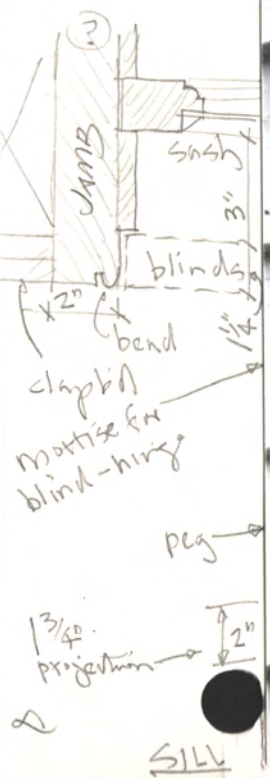 ?
JAMB
sash
3"
blinds
2"
1 1/4"
bead
clapb'd
mortise for
blind-hinge
peg
1 3/4"
projection
2"
SILL